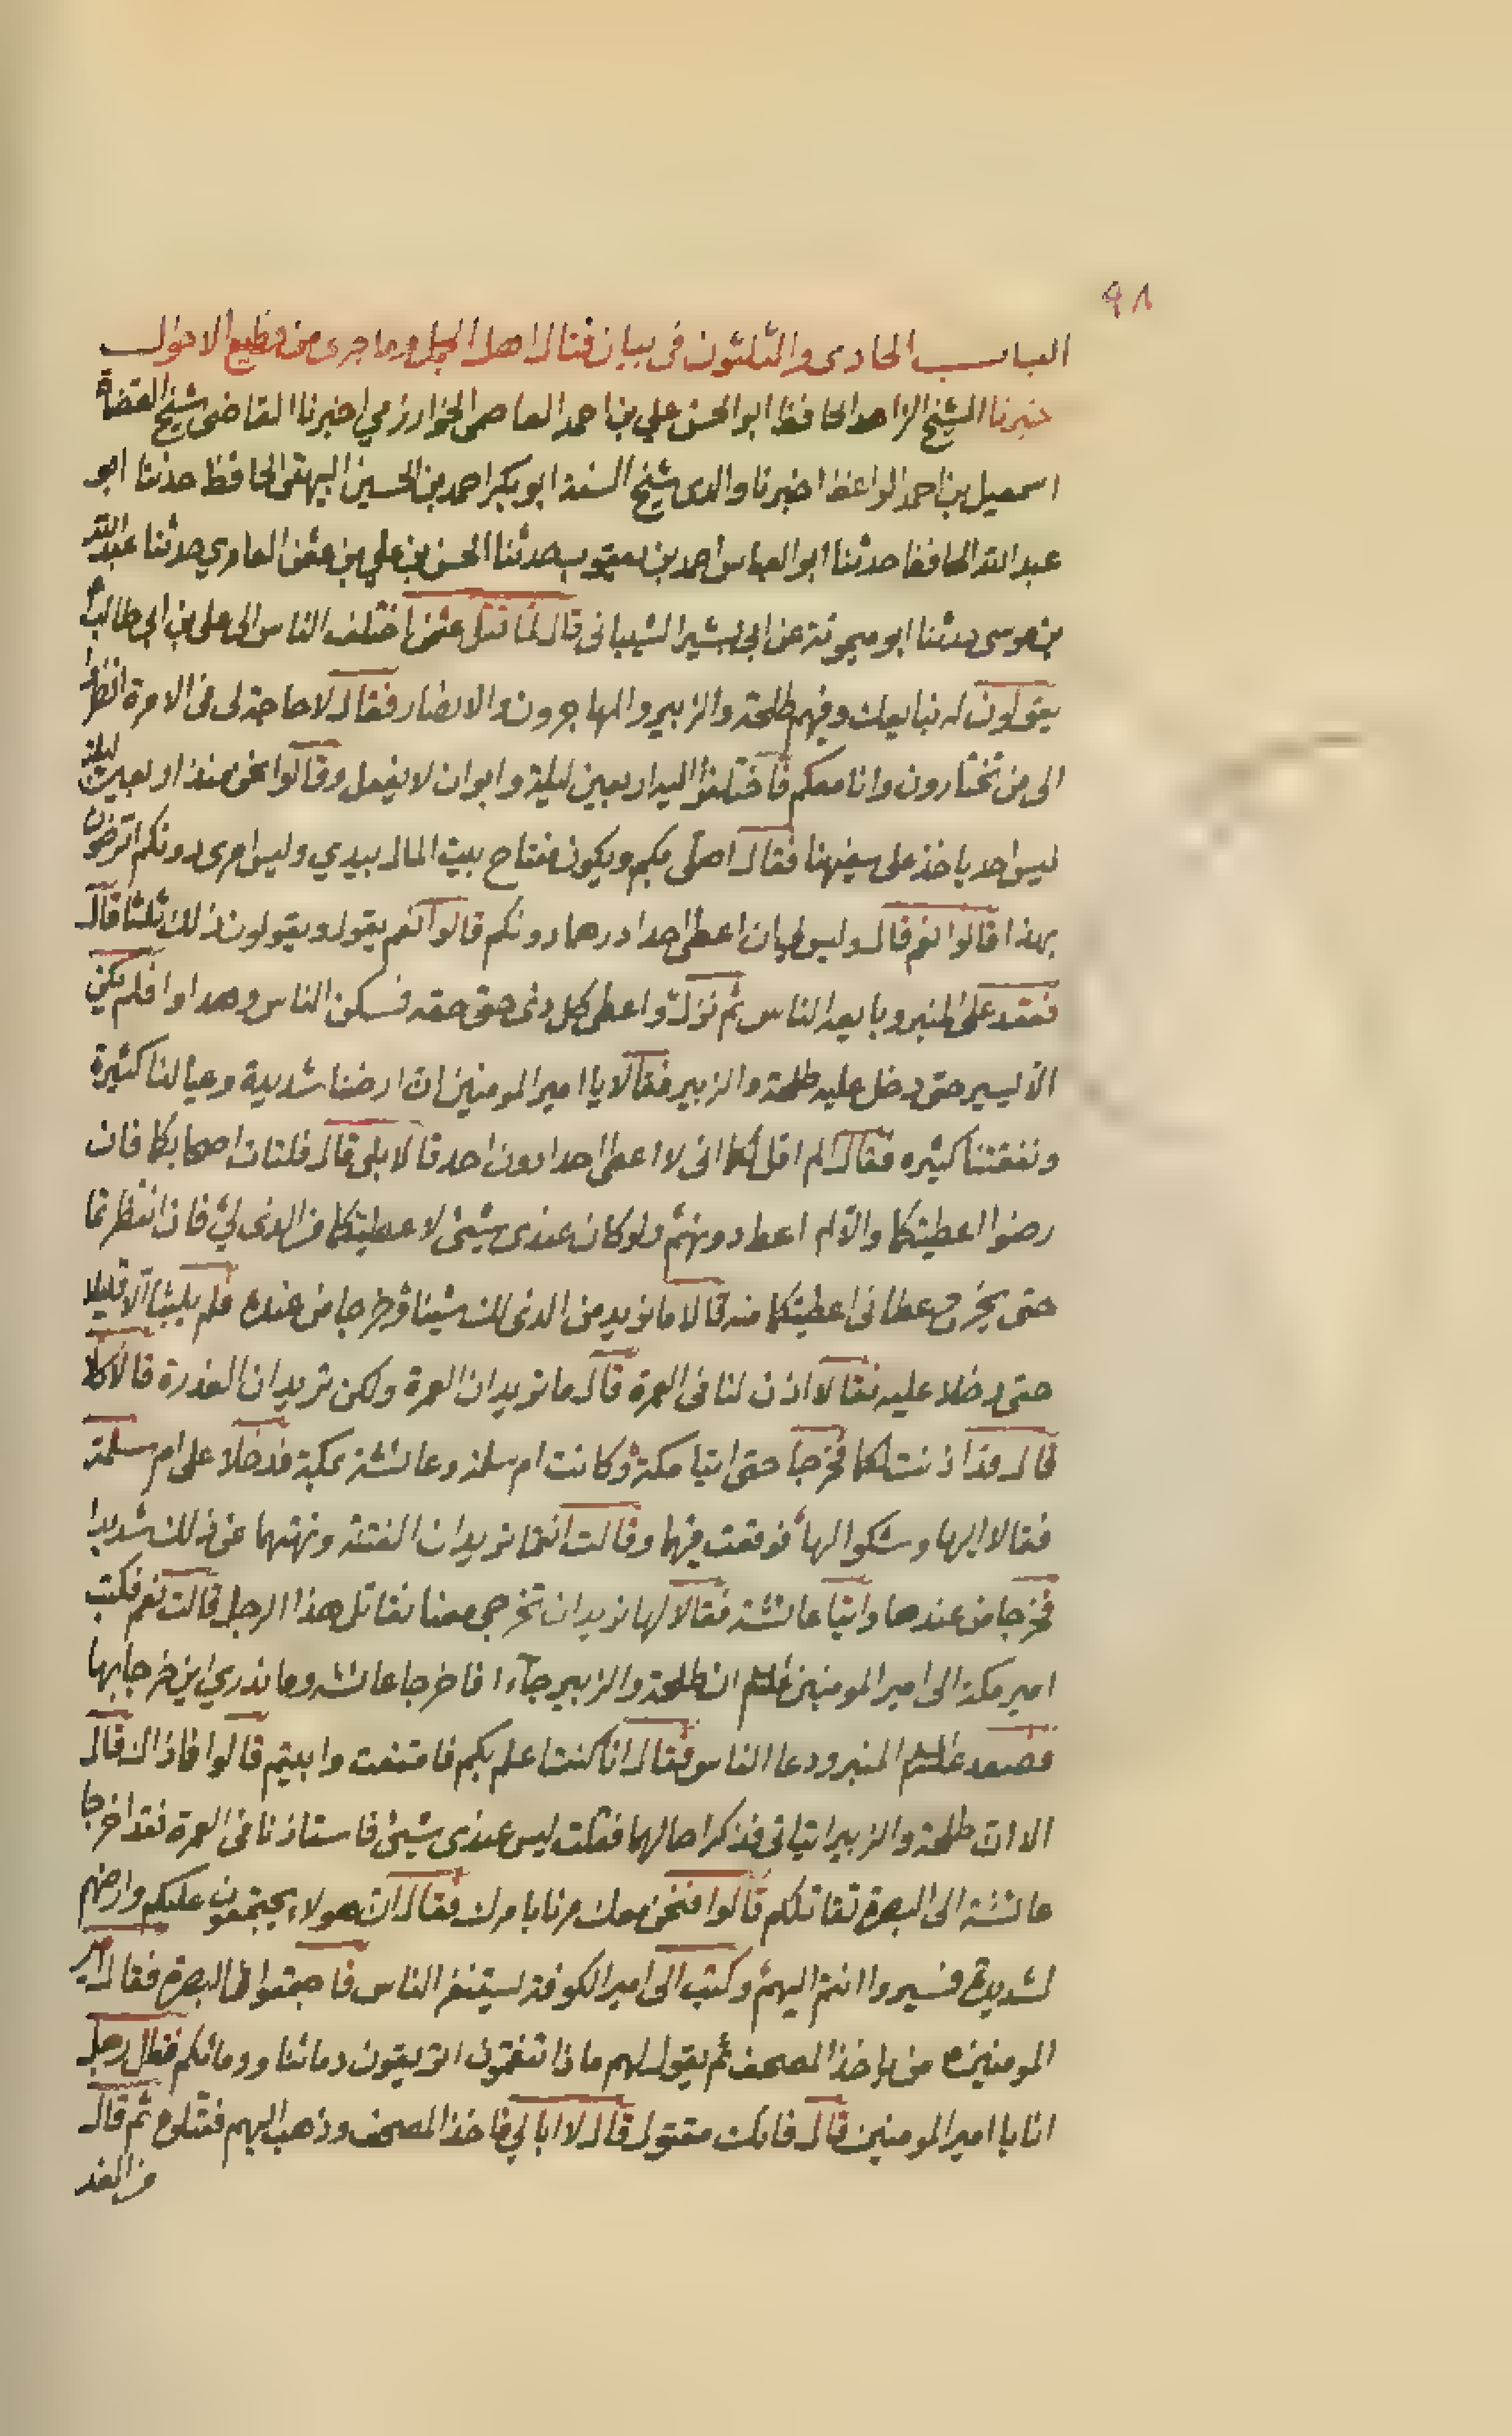 ٩٨
الباب الحادى والثلثون فى بيان قتال اهل الجمل وما جرى من فظيع الاحوال
خبرنا الشيخ الزاهد الحافظ ابو الحسن علي بن احمد العاصمى الخوارزمي اخبرنا القاضى شيخ القضاة
اسمعيل بن احمد الواعظ اخبرنا والدى شيخ السنة ابو بكر احمد بن الحسين البيهقى الحافظ حدثنا ابو
عبد الله الحافظ حدثنا ابو العباس احمد بن يعقوب حدثنا الحسن بن علي بن عفن العامري حدثنا عبد الله
بن موسى حدثنا ابو ميمونة عن ابى بشير الشيبانى قال لما قتل عثمن اختلف الناس الى على بن ابى طالب
يقولون له نبايعك وفيهم طلحة والزبير والمهاجرون والانصار فقال لا حاجة لى فى الامرة انظروا
الى من تختارون وانا معكم فاختلفوا اليه اربعين ليلة وابوا ان لا يفعل وقالوا نحن منذ اربعين ليلة
ليس احد ياخذ على سفيهنا فقال اصلى بكم ويكون مفتاح بيت المال بيدي وليس امرى دونكم اترضون
بهذا قالوا نعم قال وليس لى ان اعطى احدا درهما دونكم قالوا نعم يقول ويقولون ذلك ثلثا قال
فقعد على المنبر وبايعه الناس ثم نزل واعطى كل ذى حق حقه فسكن الناس وهداوا فلم يكن
الا يسير حتى دخل عليه طلحة والزبير فقالا يا امير المومنين ان ارضنا شديدة وعيالنا كثيرة
ونفقتنا كثيره فقال الم اقل لكما انى لا اعطى احدا دون احد قالا بلى قال فلتات اصحابكما فان
رضوا اعطيتكما والا لم اعط دونهم ولو كان عندى شيئ لاعطيتكما من الذى لي فان انتظرتما
حتى يخرج عطائى اعطيتكما منه قالا ما نريد من الذى لك شيئا وخرجا من عنده فلم يلبثا الا قليلا
حتى دخلا عليه فقالا اذن لنا فى العمرة قال ما تريدان العمرة ولكن تريدان الغدرة قالا كلا
قال قد اذنت لكما فخرجا حتى اتيا مكة وكانت ام سلمة وعائشة بمكة فدخلا على ام سلمة
فقالا لها وشكوا لها فوقعت فيهما وقالت انتما تريدان الفتنة ونهتهما عن ذلك شديدا
فخرجا من عندها واتيا عائشة فقالا لها نريد ان تخرجى معنا نقاتل هذا الرجل قالت نعم فكتب
امير مكة الى امير المومنين ان طلحة والزبير جآءا فاخرجا عائشه وما ندري اين خرجا بها
فصعد المنبر ودعا الناس فقال انا كنت اعلم بكم فامتنعت وابيتم قالوا فاذاك قال
الا ان طلحة والزبير اتيانى فذكرا حالهما فقلت ليس عندى شيئ فاستاذنا فى العمرة فقد اخرجا
عائشة الى البصرة تقاتلكم قالوا فنحن معك مرنا بامرك فقال ان هولاء يجتمعون عليكم وارضهم
لشديدة فسيروا انتم اليهم وكتب الى امير الكوفة ليستنفر الناس فاجتمعوا بالبصرة فقال امير
المومنين من ياخذ المصحف ثم يقول لهم ما ذا تنقمون تريقون دمائنا ودمائكم فقال رجل
انا يا امير المومنين قال فانك مقتول قال لا ابالي فاخذ المصحف وذهب اليهم فقتلوه ثم قال
من الغد